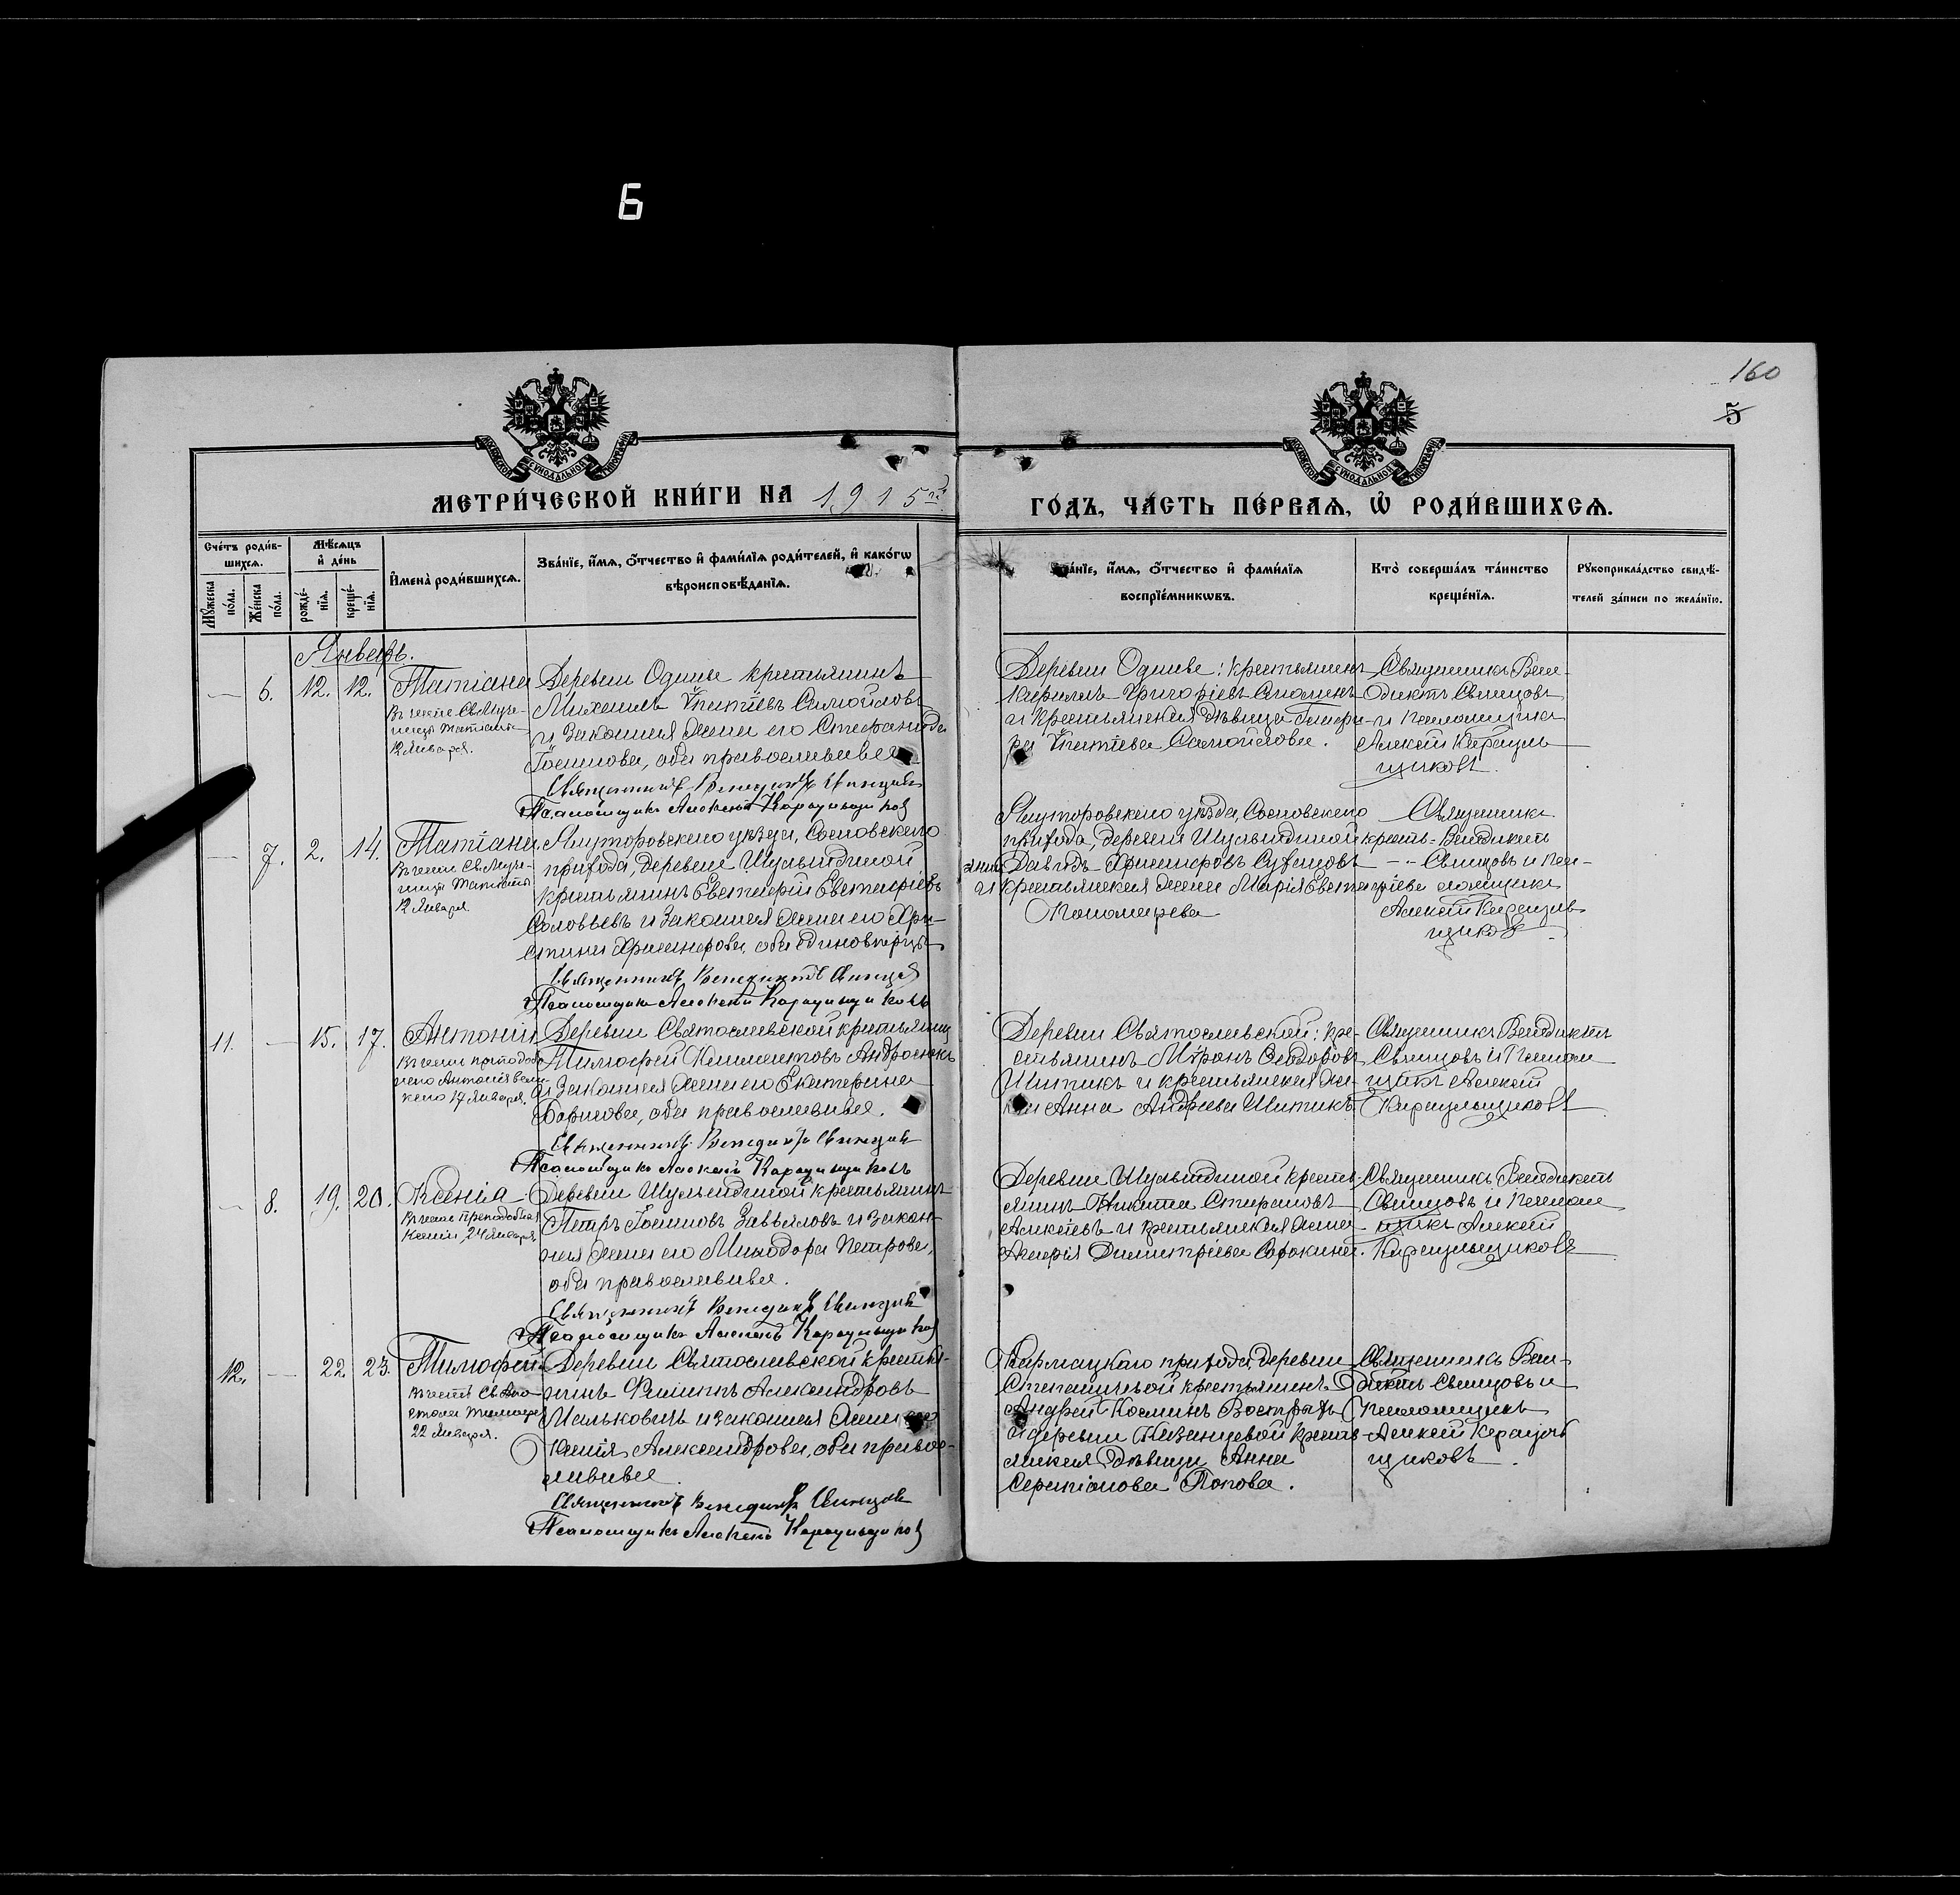 6
160
5
МЕТРИ́ЧЕСКОЙ КНИ́ГИ НА 1915 г.
ГО́ДЪ, ЧА́СТЬ ПЕ́РВАѦ, Ѡ҆ РОДИ́ВШИХСѦ.
Сче́тъ роди́в-
шихсѧ.
Мꙋ́жеска по́ла.
Же́нска по́ла.
Мѣ́сѧцъ
и҆ де́нь
рожде́-
нїѧ.
креще́-
нїѧ.
И҆мена̀ роди́вшихсѧ.
Зва́нїе, и҆́мѧ, ѻ҆́тчество и҆ фами́лїѧ роди́телей, и҆ како́гѡ
вѣроисповѣ́данїѧ.
Зва́нїе, и҆́мѧ, ѻ҆́тчество и҆ фами́лїѧ
воспрїе́мникѡвъ.
Кто̀ соверша́лъ та́инство
креще́нїѧ.
Рꙋкоприкла́дство свидѣ́-
телей за́писи по жела́нїю.
Январь.
— 6. 12. 12.
Татіана
Въ честь Св. Муче-
ницы Татіаны
12 Января.
Деревни Одинье крестьянинъ
Михаилъ Ипатіевъ Самойловъ
и законная жена его Стефанида
Іосипова, оба православные
Священникъ Венедиктъ Свинцовъ
Псаломщикъ Алексей Караульщиковъ
Деревни Одинье: крестьянинъ
Кириллъ Григоріевъ
и крестьянская дѣвица
Ипатіева Самойлова.
Священникъ Вене-
диктъ Свинцовъ
и Псаломщикъ
Алексей Карауль
щиковъ.
— 7. 2. 14.
Татіана
Въ честь Св. Муче-
ницы Татіаны
12 Января
Ялуторовскаго уѣзда, Сосновскаго
прихода, деревни Шульгиной
крестьянинъ Евстафій Евстафіевъ
Соловьевъ и законная жена его Хри-
стина, оба единовѣрцы
Священникъ Венедиктъ Свинцовъ
Псаломщикъ Алексей Караульщиковъ
Ялуторовскаго уѣзда, Сосновскаго
прихода, деревни Шульгиной кресть-
янинъ Давидъ
и крестьянская жена Марія
Пономарева
Священникъ
Венедиктъ
Свинцовъ и Пса-
ломщикъ
Алексей Карауль
щиковъ
11. — 15. 17.
Антоній
Въ честь преподоб-
наго Антонія Вели-
каго 17 Января.
Деревни Святославской крестьянинъ
Тимофей Климентовъ
и законная жена его Екатерина
Борисова, оба православные.
Священникъ Венедиктъ Свинцовъ
Псаломщикъ Алексей Караульщиковъ
Деревни Святославской: кре-
стьянинъ Миронъ Сидоровъ
Шитикъ и крестьянская же-
на Анна Андреева Шитикъ.
Священникъ Венедиктъ
Свинцовъ и Псалом
щикъ Алексей
Караульщиковъ
— 8. 19. 20.
Ксенія
Въ честь преподобныя
Ксеніи, 24 Января
Деревни Шульгиной крестьянинъ
Петръ Іосиповъ Завьяловъ и закон-
ная жена его Минодора Петрова,
оба православные.
Священникъ Венедиктъ Свинцовъ
Псаломщикъ Алексей Караульщиковъ
Деревни Шульгиной кресть-
янинъ Никита Спиридоновъ
Алексѣевъ и крестьянская жена
Димитріева Сорокина.
Священникъ Венедиктъ
Свинцовъ и Псалом
щикъ Алексей
Караульщиковъ
12. — 22. 23.
Тимофей
Въ честь Св. Апо-
стола Тимофея
22 Января.
Деревни Святославской крестья-
нинъ Филиппъ Александровъ
Мальковичъ и законная жена его
Ксенія Александрова, оба право-
славные.
Священникъ Венедиктъ Свинцовъ
Псаломщикъ Алексей Караульщиковъ
Кармацкаго прихода деревни
крестьянинъ
Андрей Косминъ
и деревни Казанцевой кресть
янская дѣвица Анна
Попова.
Священникъ Вене-
диктъ Свинцовъ и
Псаломщикъ
Алексей Карауль
щиковъ.